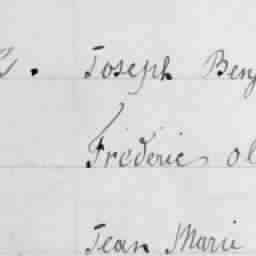 Joseph Benj
Fréderic ol
Jean Marie